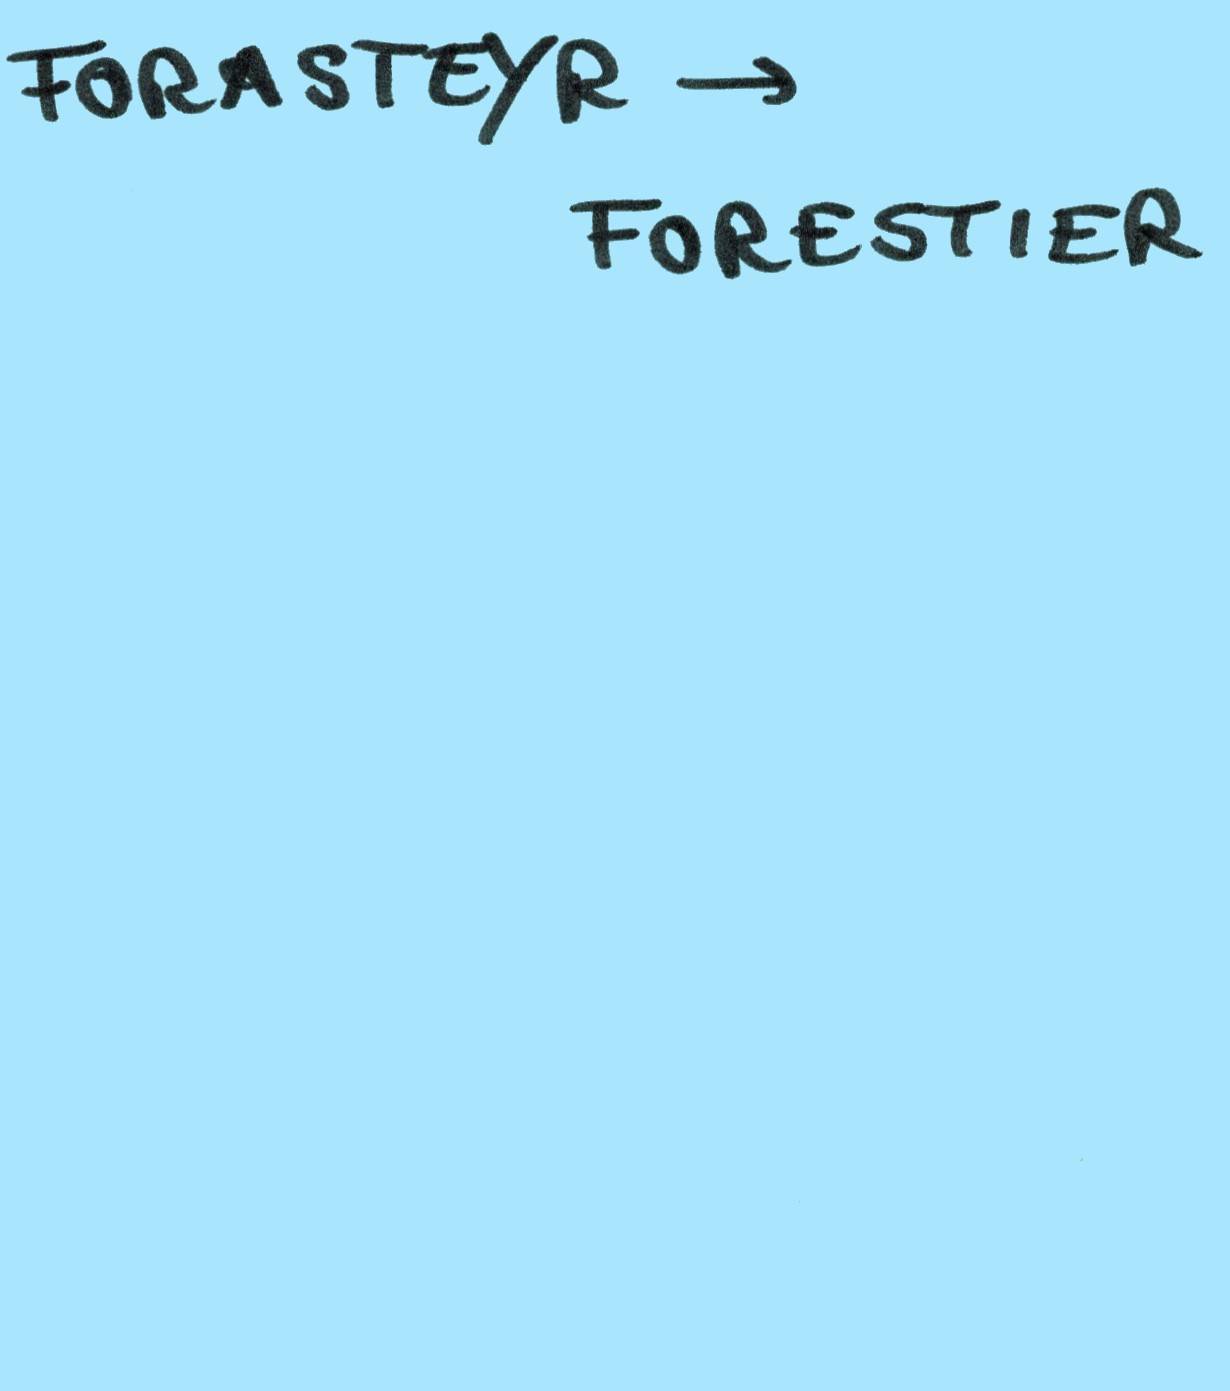 FORASTEYR →
FORESTIER